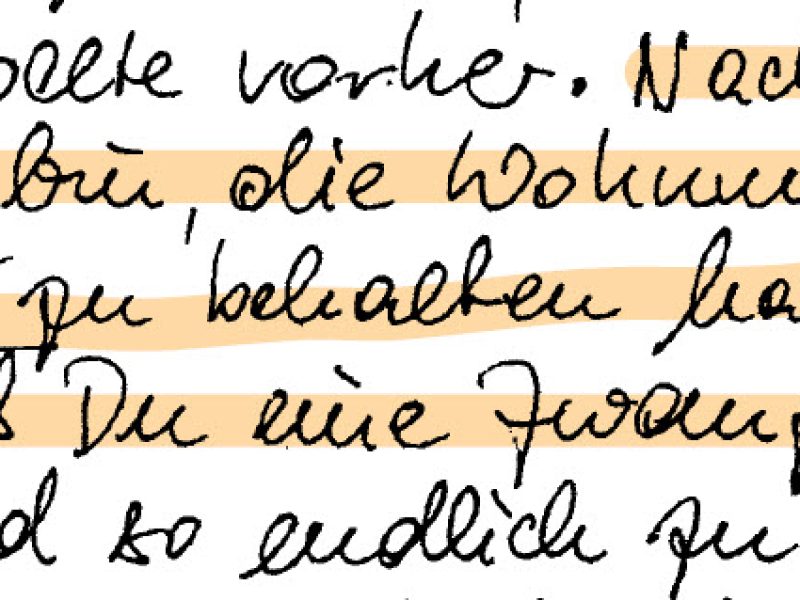 ollte vorher. Nac
bin, die Wohnun
zu behalten ha
s Du eine Zwang
d so endlich zu